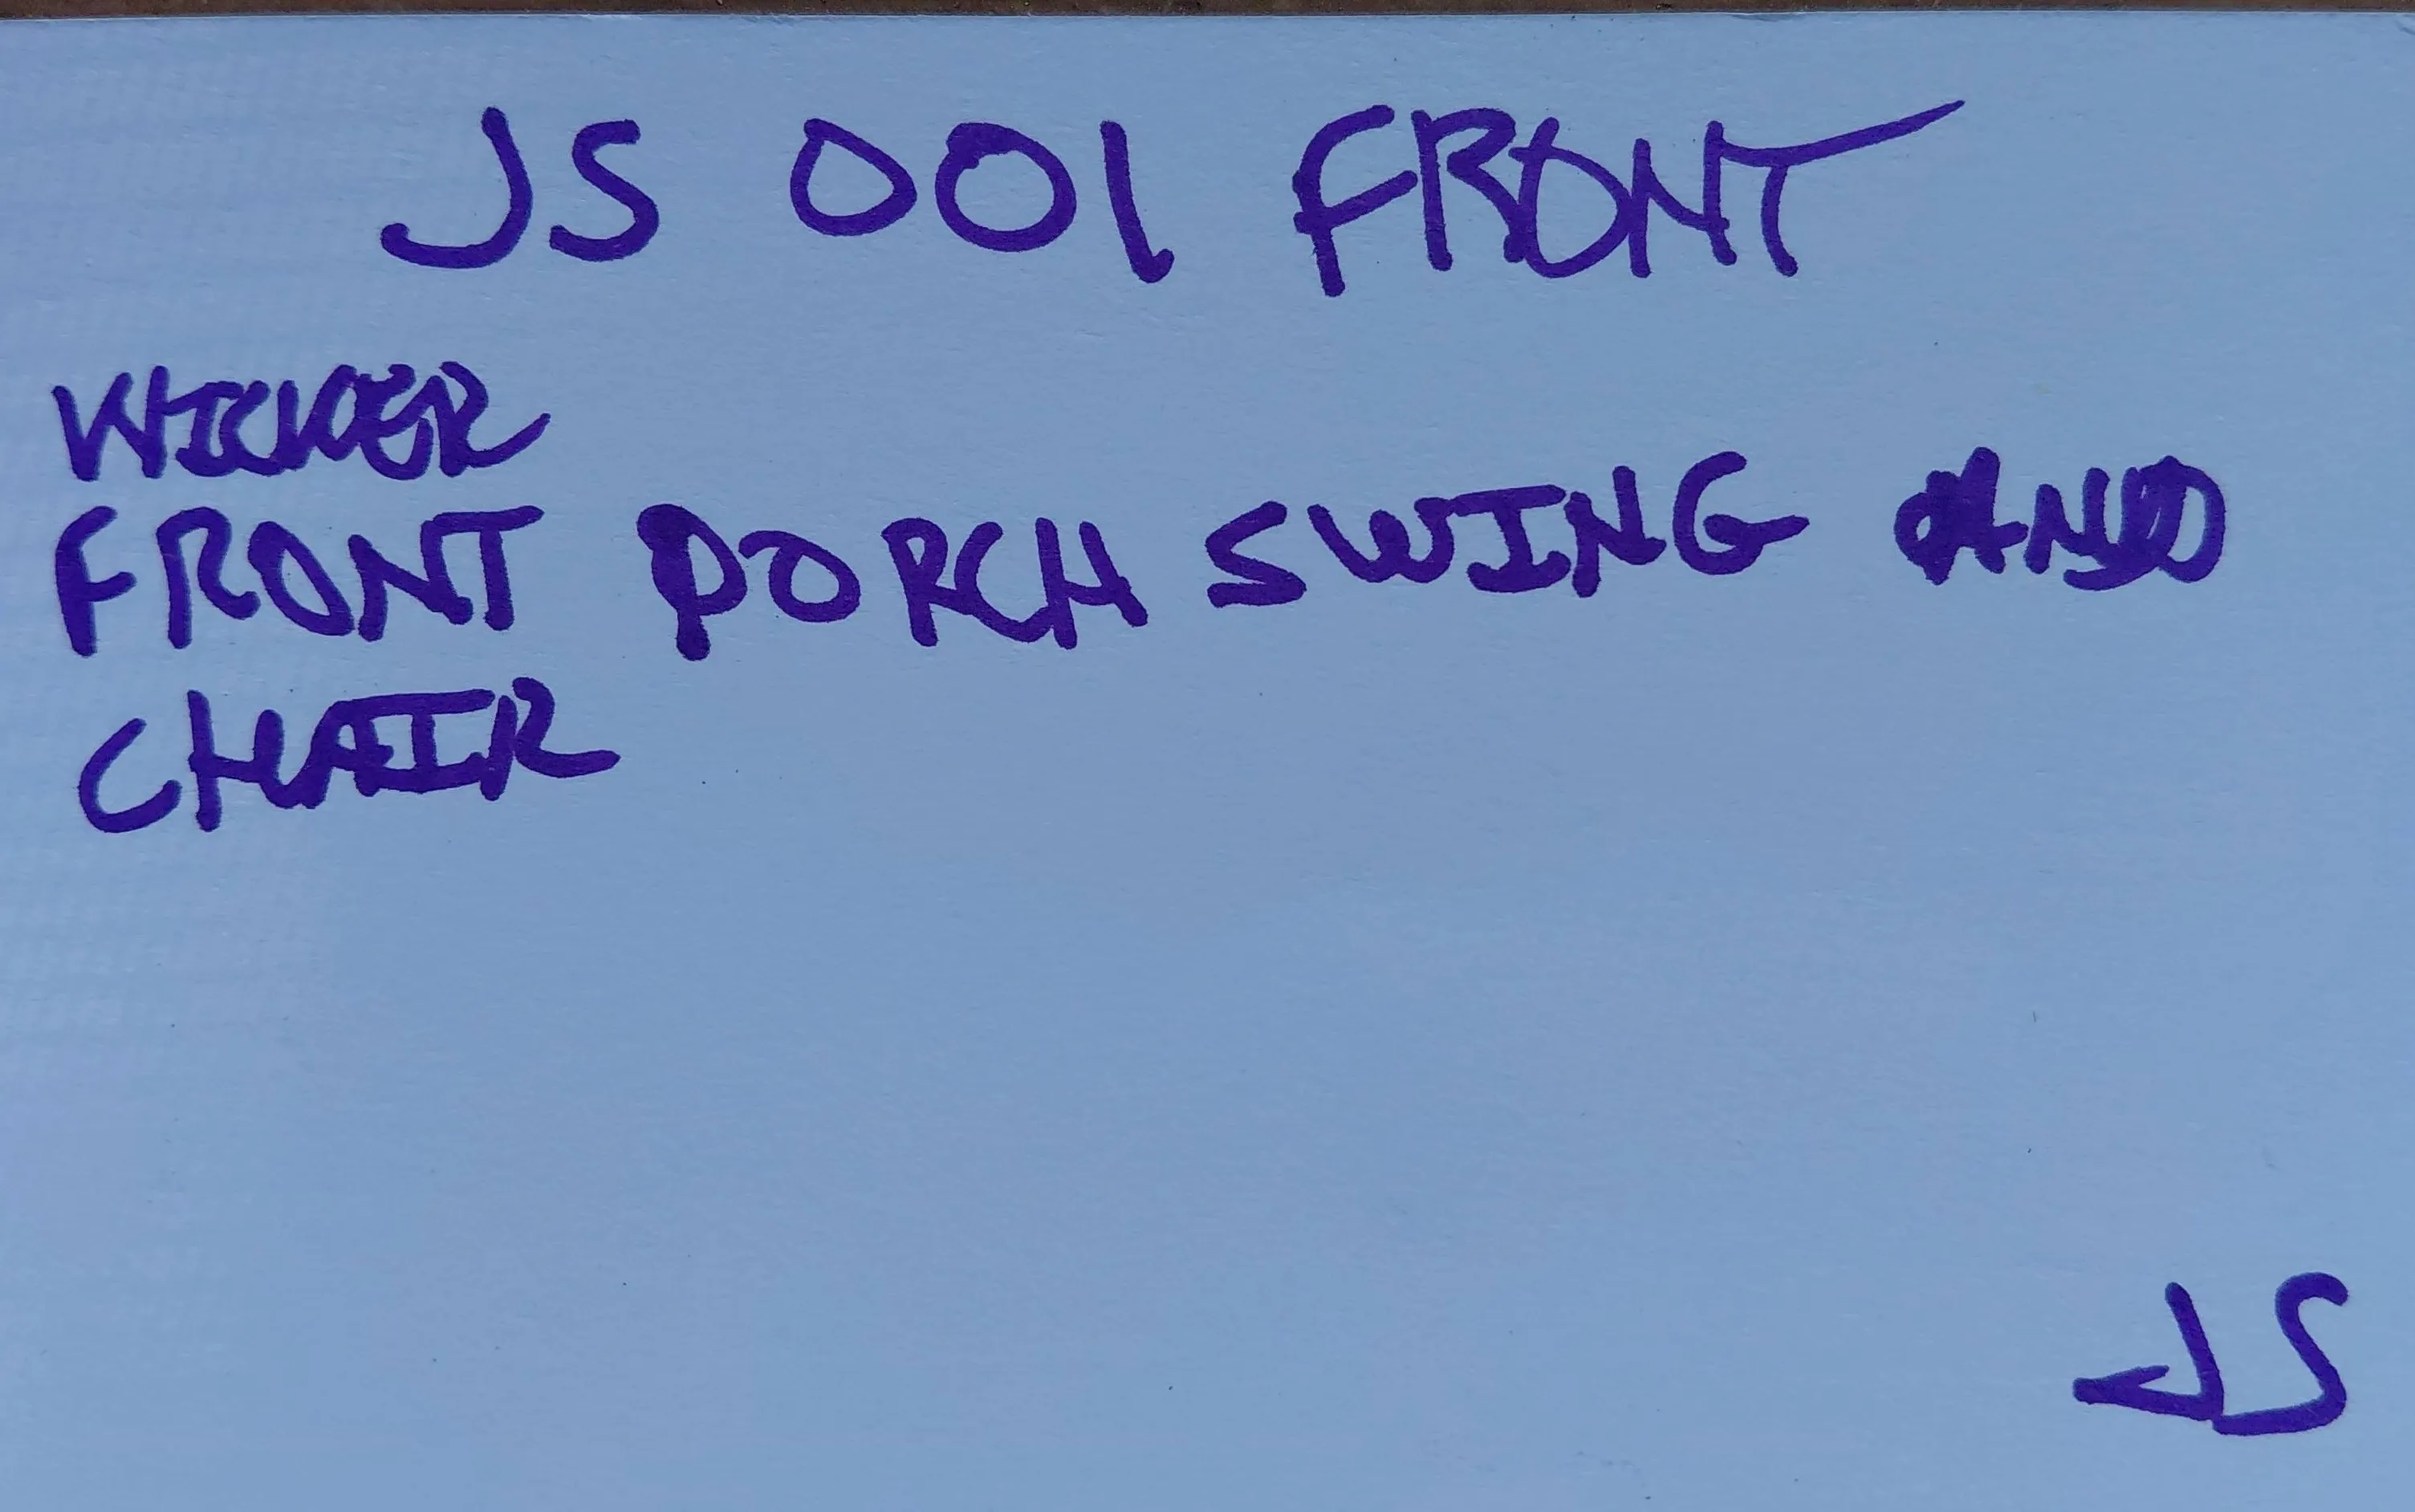 JS 001 FRONT
WICKER
FRONT PORCH SWING AND
CHAIR
JS